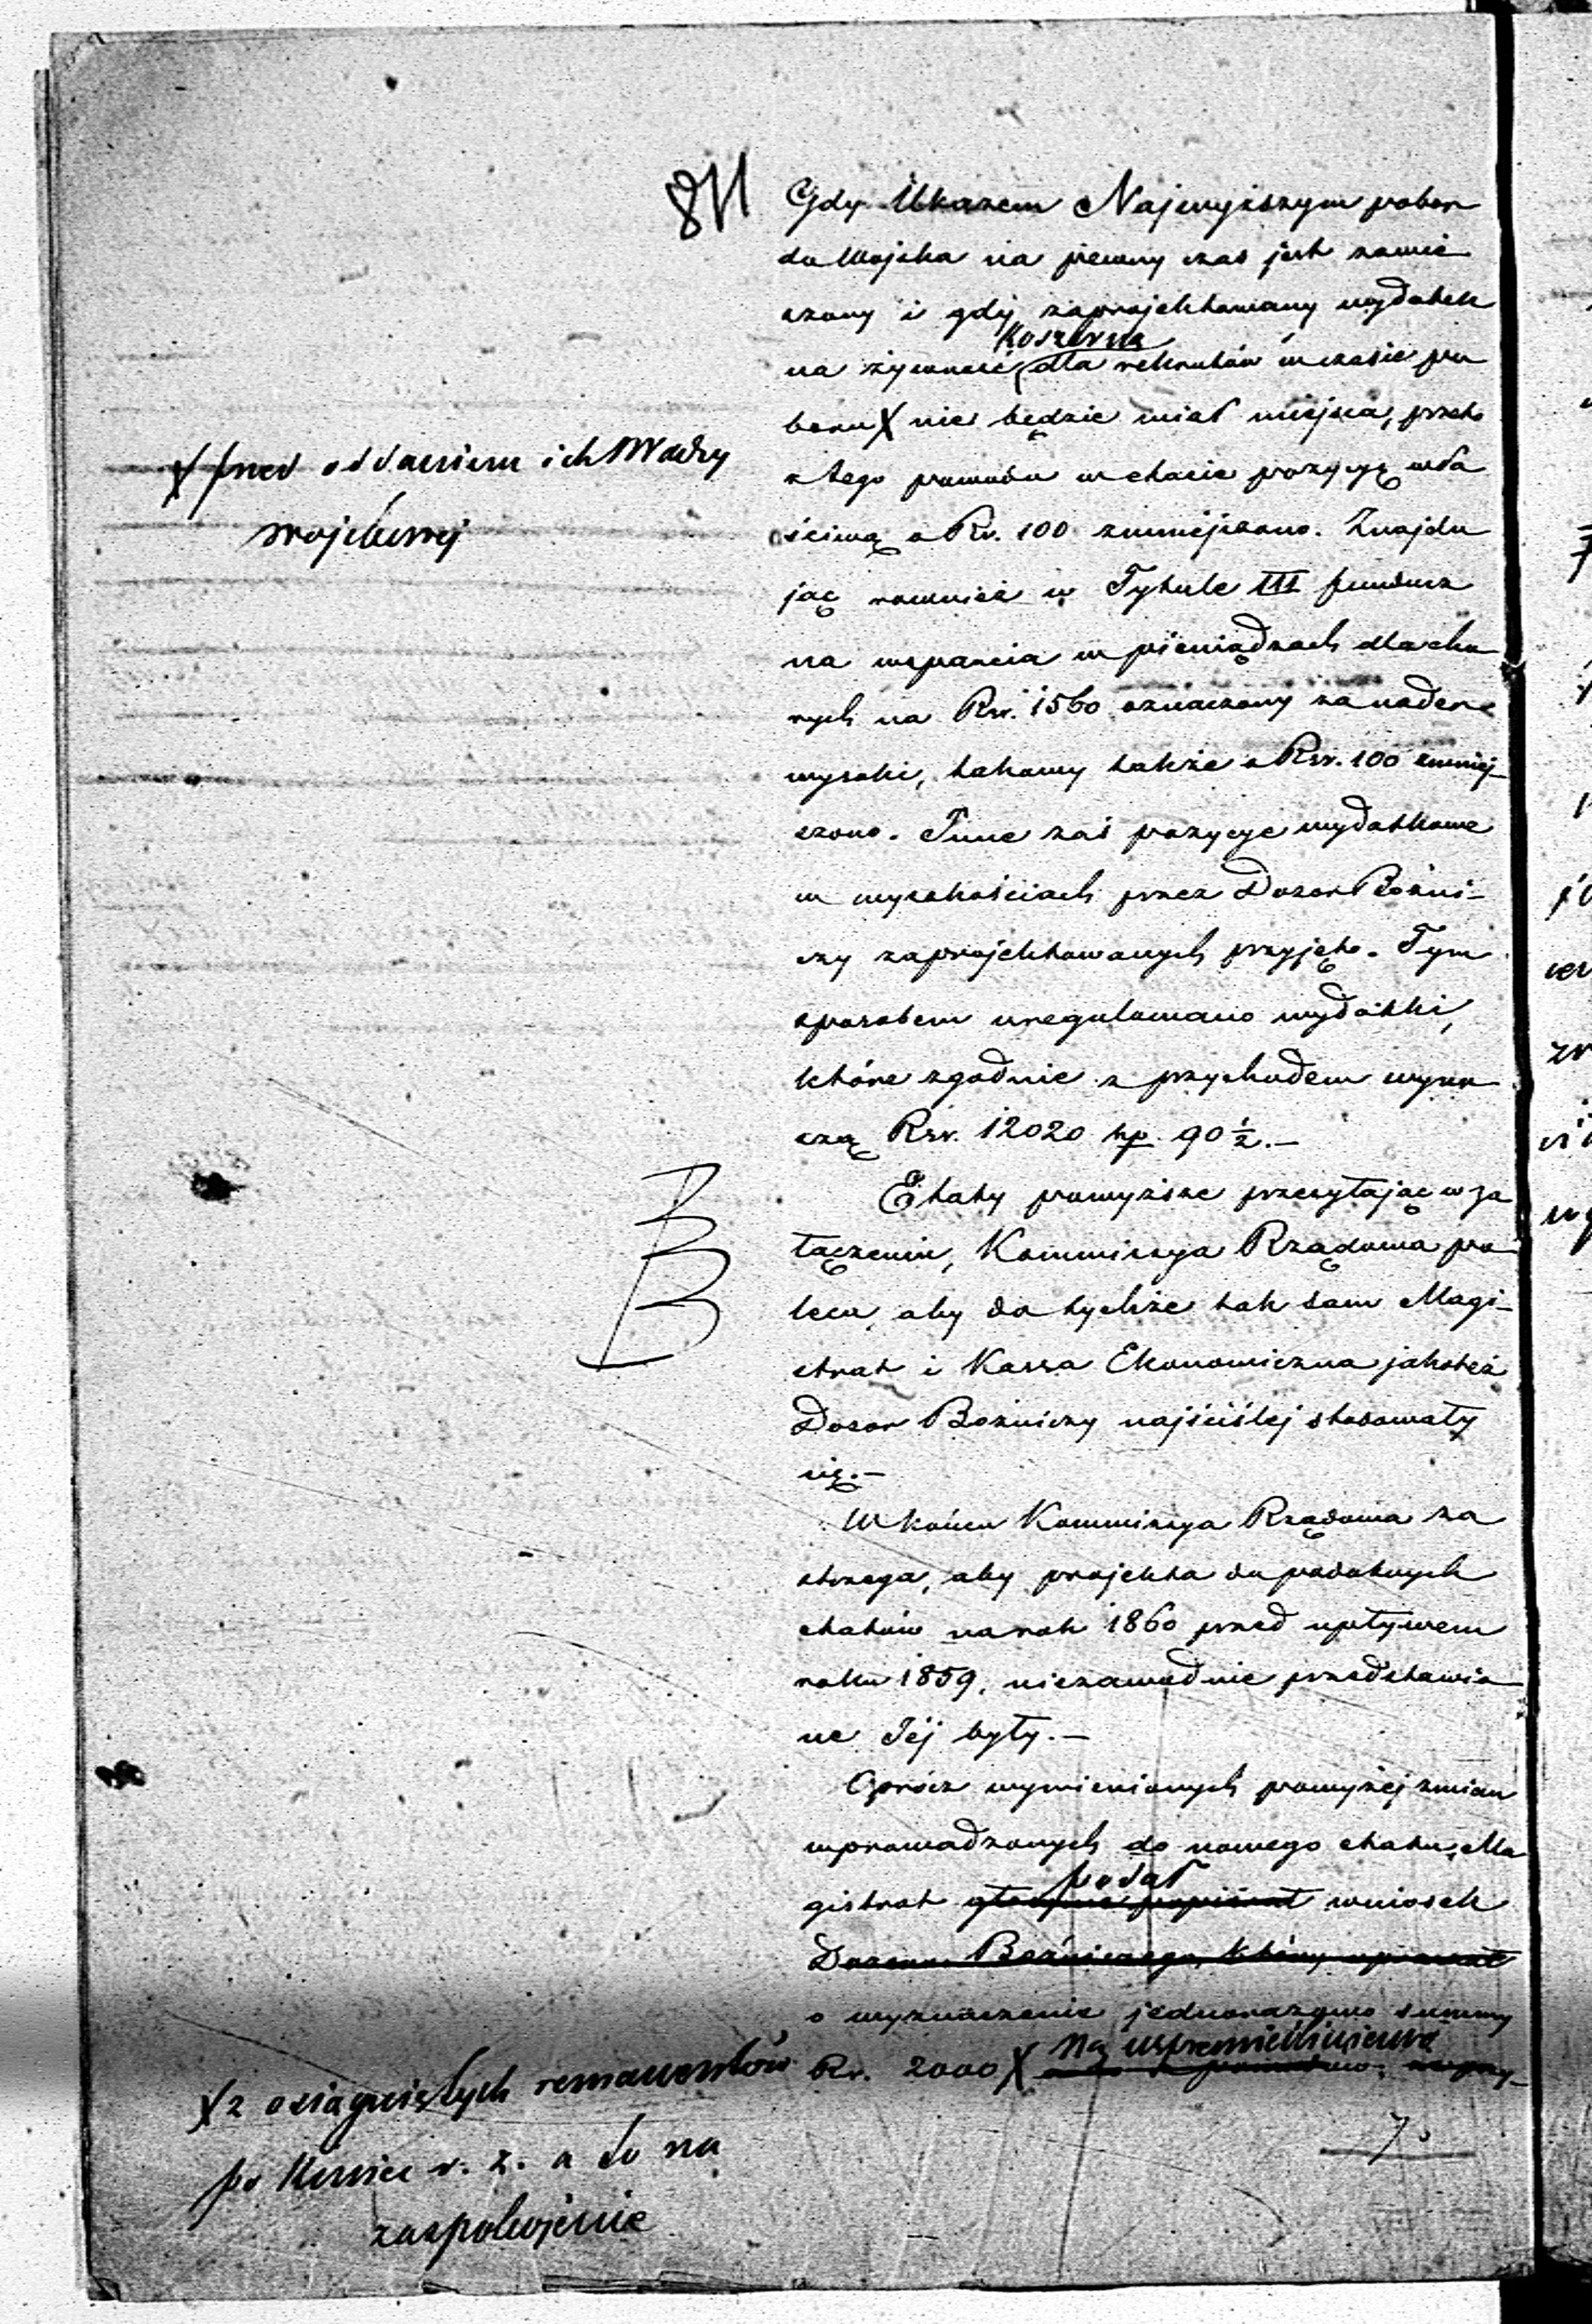 811
Gdy Ukazem Najwyższym pobor
do Wojska na pewny czas jest zawie
szony i gdy zaprojektowany wydatek
koszerną
na żywność dla rekrutów w czasie po
boru X nie będzie miał miejsca, przeto
X przed oddaniem ich Władzy
wojskowej
z tego powodu w etacie pozycyę wła
ściwą o Rs. 100 zmniejszono. Znajdu
jąc rownież w Tytule III fundusz
na wsparcia w pieniądzach dla cho
rych na Rsr. 1560 oznaczony za nader
wysoki, takowy także o Rsr. 100 zmniej-
szono. Inne zaś pozycye wydatkowe
w wysokościach przez Dozor Bożni-
czy zaprojektowanych przyjęto. Tym
sposobem uregulowano wydatki,
które zgodnie z przychodem wyno
szą Rsr. 12020 kp. 90 1/2.—
Etaty powyższe przesyłając w za
łączeniu, Kommissya Rządowa po
leca, aby do tychże tak sam Magi-
strat i Kassa Ekonomiczna jakoteż
Dozor Bożniczy najściślej stosowały
się.—
W końcu Kommissya Rządowa za
strzega, aby projekta do podobnych
etatów na rok 1860 przed upływem
roku 1859, niezawodnie przedstawio
ne Jéj były.—
Oprócz wymienionych powyżej zmian
wprowadzonych do nowego etatu, Ma
podał
gistrat wniosek
Dozoru Bożniczego, który
o wyznaczenie jednorazowo summy
Na
Rs. 2000 X
X z osiągniętych remanentów
po koniec r. z. a to na
zaspokojenie